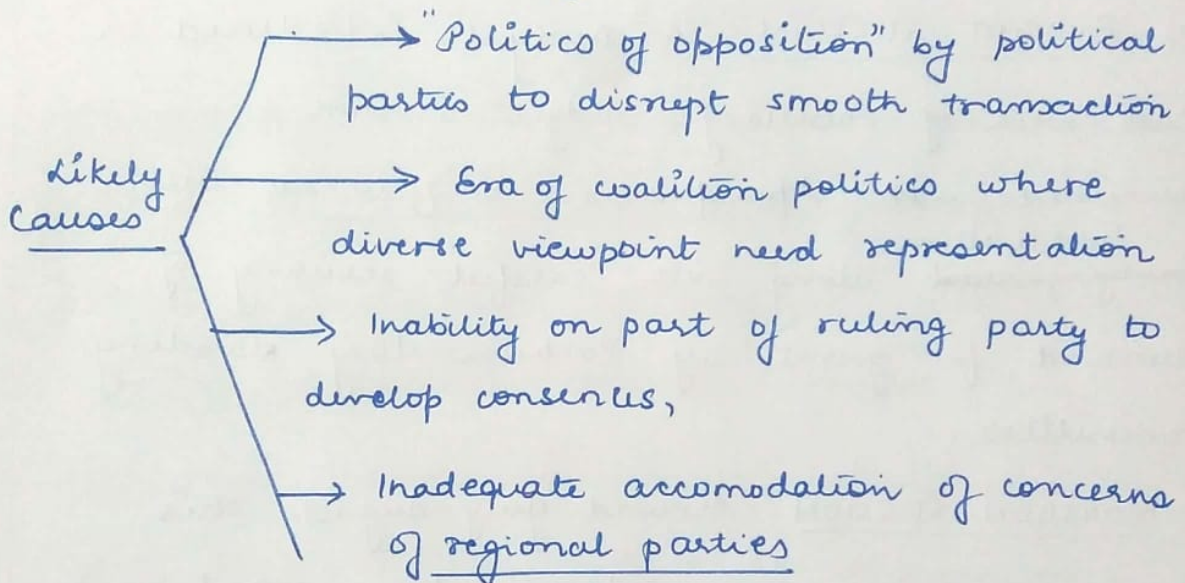 "Politics of opposition" by political
parties to disrupt smooth transaction
Likely
causes
Era of coalition politics where
diverse viewpoint need representation
Inability on part of ruling party to
develop consenus,
Inadequate accomodation of concerns
of regional parties